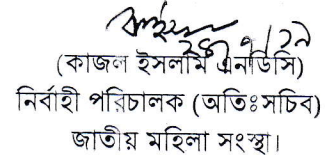 (কাজল ইসলাম এনডিসি)
নির্বাহী পরিচালক (অতিঃসচিব)
জাতীয় মহিলা সংস্থা।